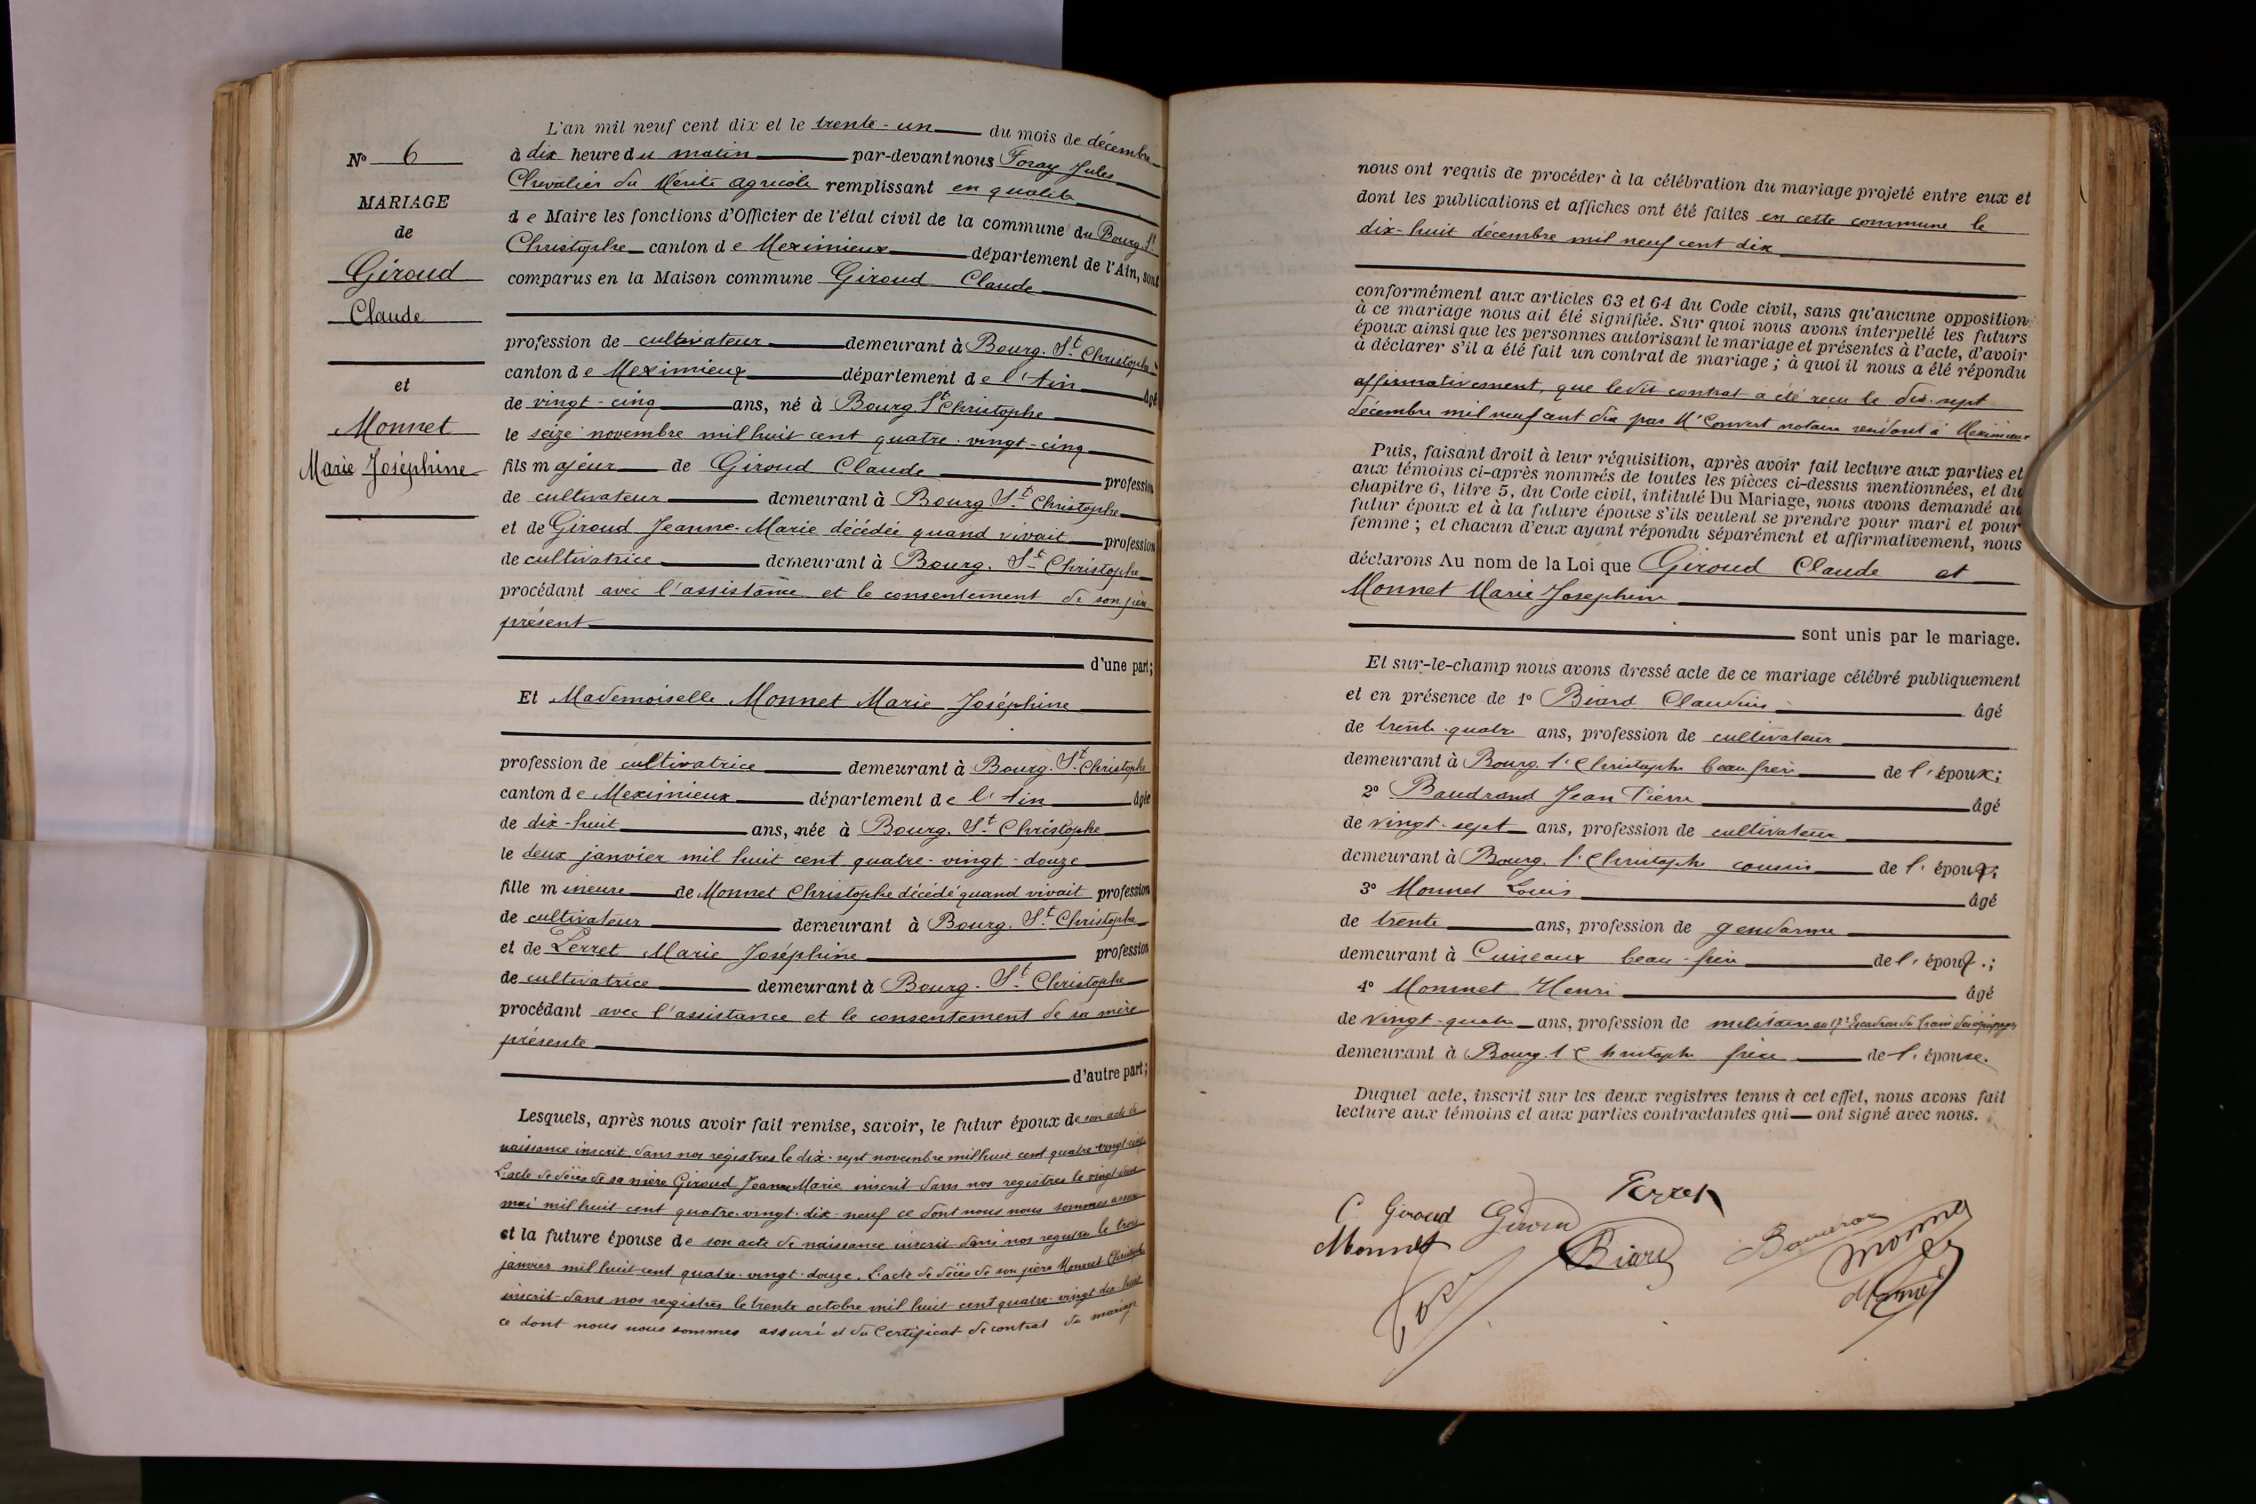 N° 6
MARIAGE
de
Giroud
Claude
et
Monnet
Marie Joséphine
L'an mil neuf cent dix et le trente-un du mois de décembre
à dix heure du matin par-devant nous Foray Jules
Chevalier du Mérite agricole remplissant en qualité
de Maire les fonctions d'Officier de l'état civil de la commune du Bourg St
Christophe canton de Meximieux département de l'Ain, sont
comparus en la Maison commune Giroud Claude
profession de cultivateur demeurant à Bourg. St Christophe
canton de Meximieux département de l'Ain âgé
de vingt-cinq ans, né à Bourg St Christophe
le seize novembre mil huit cent quatre-vingt-cinq
fils majeur de Giroud Claude profession
de cultivateur demeurant à Bourg St Christophe
et de Giroud Jeanne-Marie décédée quand vivait profession
de cultivatrice demeurant à Bourg. St Christophe
procédant avec l'assistance et le consentement de son père
présent
d'une part;
Et Mademoiselle Monnet Marie Joséphine
profession de cultivatrice demeurant à Bourg. St Christophe
canton de Meximieux département de l'Ain âgée
de dix-huit ans, née à Bourg. St Christophe
le deux janvier mil huit cent quatre-vingt-douze
fille mineure de Monnet Christophe décédé quand vivait profession
de cultivateur demeurant à Bourg. St Christophe
et de Perret Marie Joséphine profession
de cultivatrice demeurant à Bourg. St Christophe
procédant avec l'assistance et le consentement de sa mère
présente
d'autre part;
Lesquels, après nous avoir fait remise, savoir, le futur époux de son acte de
naissance inscrit dans nos registres le dix-sept novembre mil huit cent quatre-vingt-cinq
L'acte de décès de sa mère Giroud Jeanne Marie inscrit dans nos registres le vingt-deux
mai mil huit cent quatre-vingt-dix-neuf ce dont nous nous sommes assuré
et la future épouse de son acte de naissance inscrit dans nos registres le trois
janvier mil huit cent quatre-vingt-douze. L'acte de décès de son père Monnet Christophe
inscrit dans nos registres le trente octobre mil huit cent quatre-vingt dix huit
ce dont nous nous sommes assuré et du certificat de contrat de mariage
nous ont requis de procéder à la célébration du mariage projeté entre eux et
dont les publications et affiches ont été faites en cette commune le
dix-huit décembre mil neuf cent dix
conformément aux articles 63 et 64 du Code civil, sans qu'aucune opposition
à ce mariage nous ait été signifiée. Sur quoi nous avons interpellé les futurs
époux ainsi que les personnes autorisant le mariage et présentes à l'acte, d'avoir
à déclarer s'il a été fait un contrat de mariage ; à quoi il nous a été répondu
affirmativement, que ledit contrat a été reçu le dix-sept
décembre mil neuf cent dix par Me Convert notaire résidant à Meximieux
Puis, faisant droit à leur réquisition, après avoir fait lecture aux parties et
aux témoins ci-après nommés de toutes les pièces ci-dessus mentionnées, et du
chapitre 6, titre 5, du Code civil, intitulé Du Mariage, nous avons demandé au
futur époux et à la future épouse s'ils veulent se prendre pour mari et pour
femme ; et chacun d'eux ayant répondu séparément et affirmativement, nous
déclarons Au nom de la Loi que Giroud Claude et
Monnet Marie Josephine
sont unis par le mariage.
Et sur-le-champ nous avons dressé acte de ce mariage célébré publiquement
et en présence de 1° Biard Claudius âgé
de trente-quatre ans, profession de cultivateur
demeurant à Bourg. St Christophe beau frère de l'époux;
2° Baudrand Jean Pierre âgé
de vingt-sept ans, profession de cultivateur
demeurant à Bourg. St Christophe cousin de l'époux;
3° Monnet Louis âgé
de trente ans, profession de gendarme
demeurant à Cuiseaux beau-frère de l'époux.;
4° Monnet Henri âgé
de vingt-quatre ans, profession de militaire au Escadron du train des équipages
demeurant à Bourg. St Christophe frère de l'épouse.
Duquel acte, inscrit sur les deux registres tenus à cet effet, nous avons fait
lecture aux témoins et aux parties contractantes qui ont signé avec nous.
C Giroud Giroud Perret
Monnet Biard